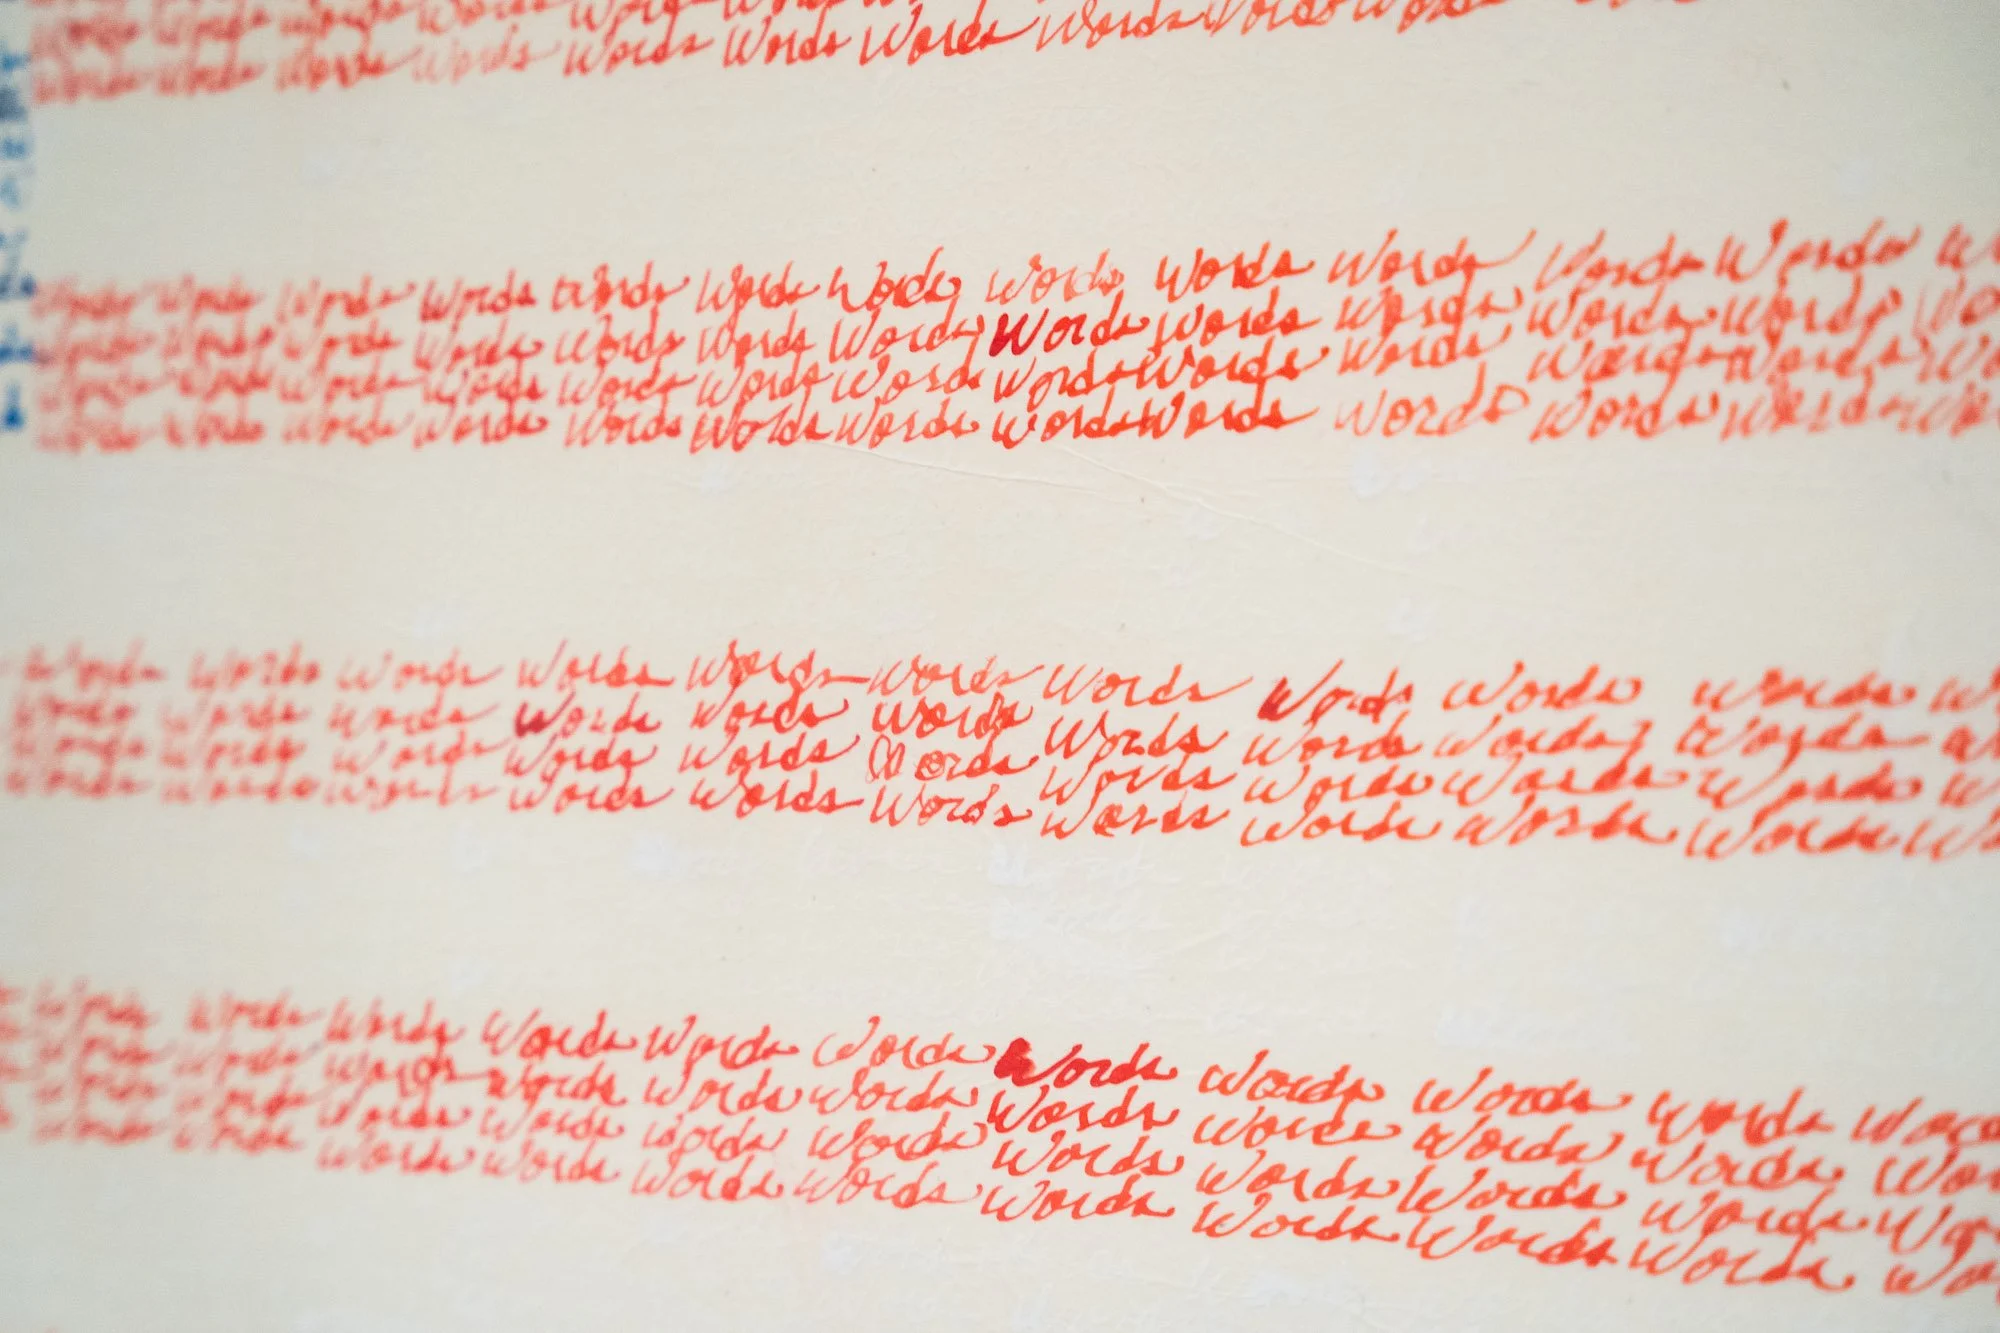 Words Words Words Words Words Words Words
Words Words Words Words Words Words Words Words Words
Words Words Words Words Words Words Words Words Words Words Words Words
Words Words Words Words Words Words Words Words Words Words Words Words
Words Words Words Words Words Words Words Words Words Words Words Words
Words Words Words Words Words Words Words Words Words Words Words Words
Words Words Words Words Words Words Words Words Words Words
Words Words Words Words Words Words Words Words Words Words
Words Words Words Words Words Words Words Words Words Words
Words Words Words Words Words Words Words Words Words Words
Words Words Words Words Words Words Words Words Words Words
Words Words Words Words Words Words Words Words Words Words
Words Words Words Words Words Words Words Words Words Words
Words Words Words Words Words Words Words Words Words Words